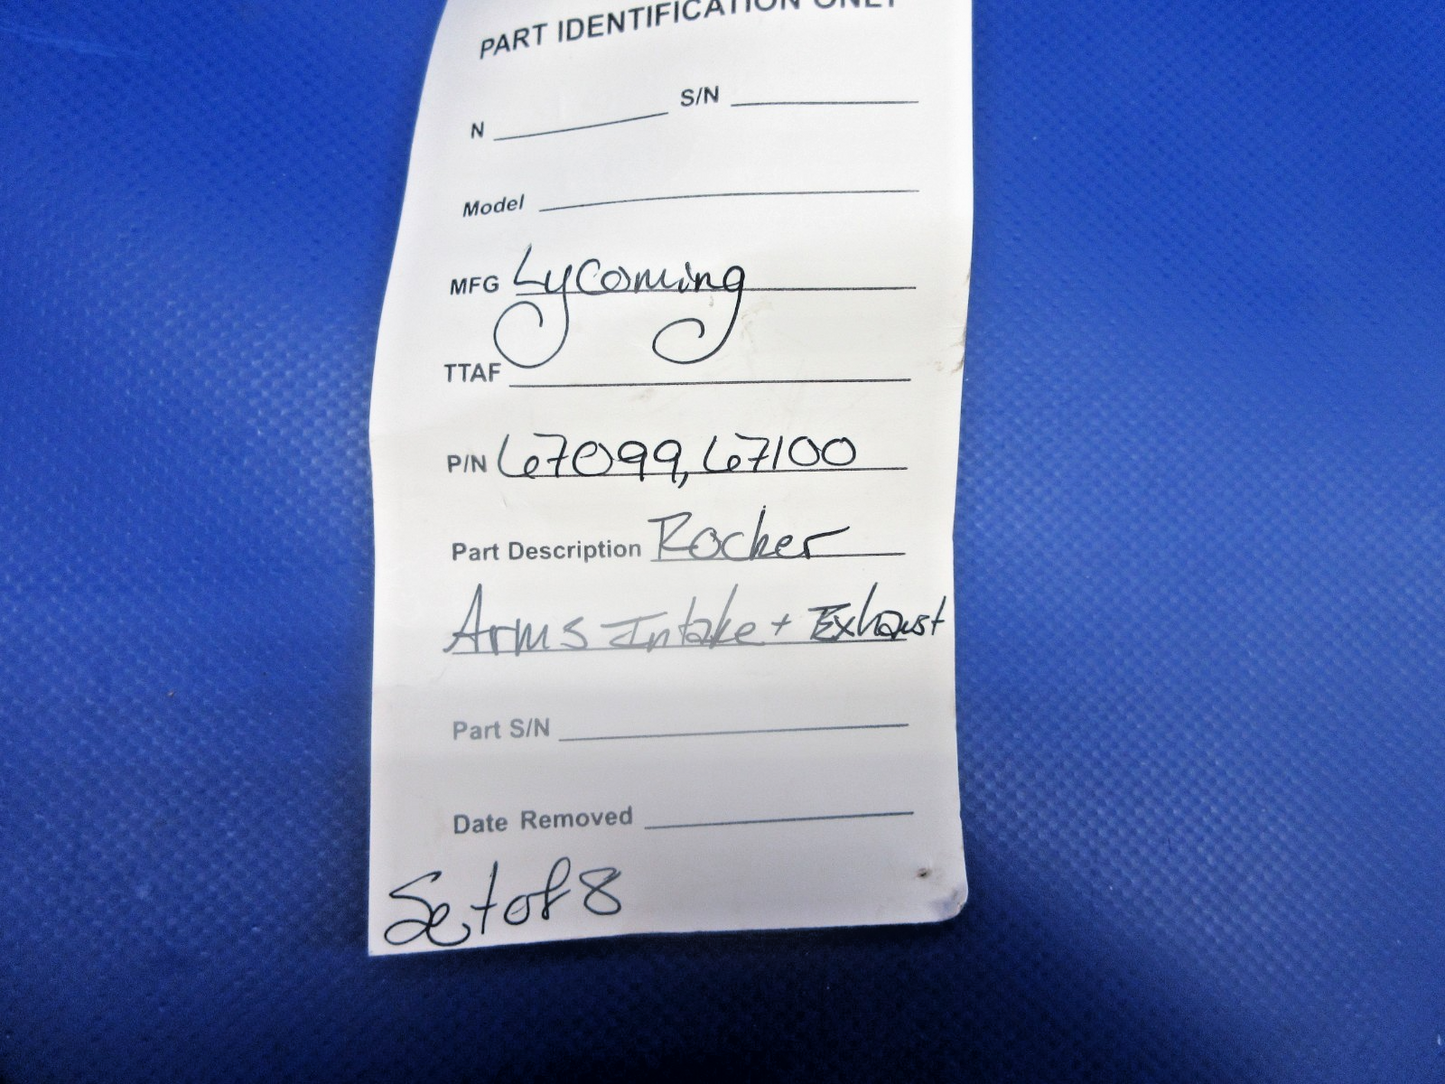 PART IDENTIFICATION ONLY
N S/N
Model
MFG Lycoming
TTAF
P/N 67099, 67100
Part Description Rocker
Arms Intake + Exhaust
Part S/N
Date Removed
Set of 8